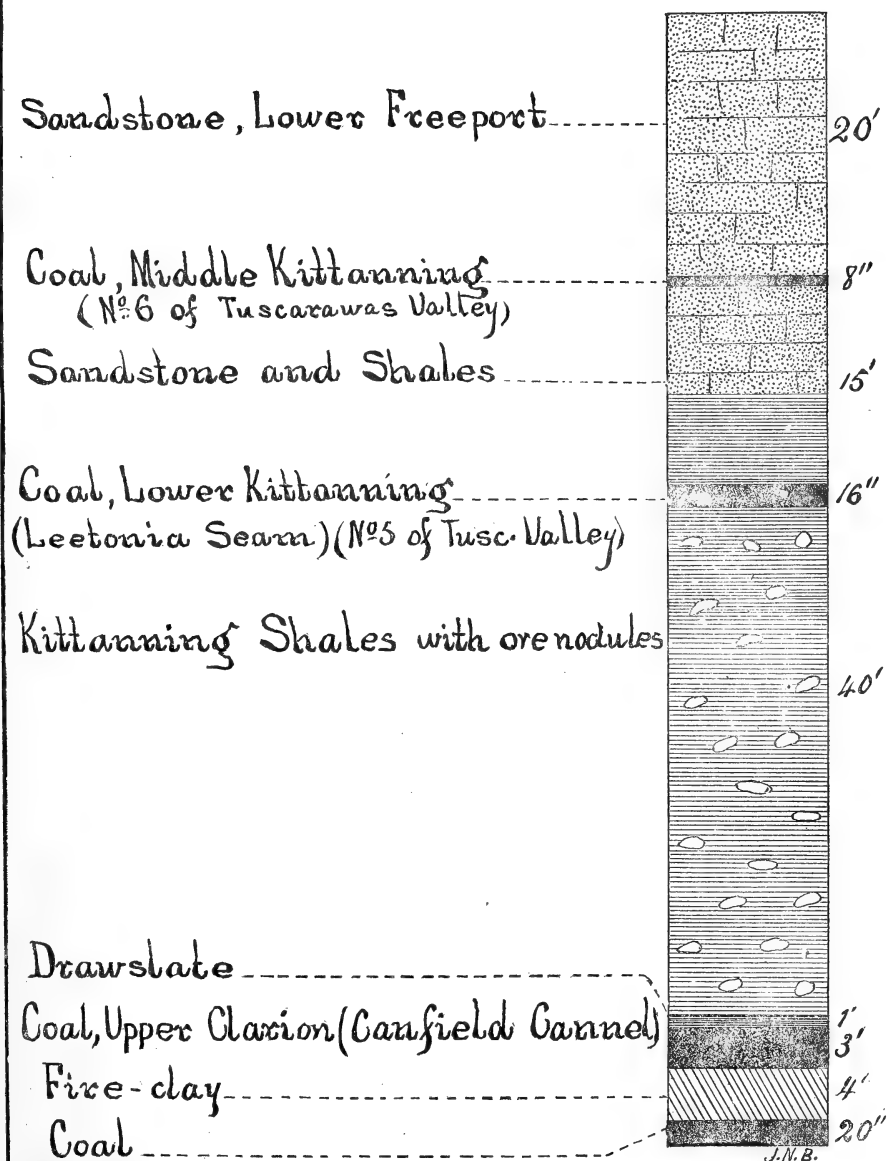 Sandstone, Lower Freeport 20'
Coal, Middle Kittanning 8"
(No. 6 of Tuscarawas Valley)
Sandstone and Shales 15'
Coal, Lower Kittanning 16"
(Leetonia Seam) (No. 5 of Tusc. Valley)
Kittanning Shales with ore nodules
40'
Drawslate 1'
Coal, Upper Clarion (Canfield Cannel) 3'
Fire-clay 4'
Coal 20"
J.N.B.